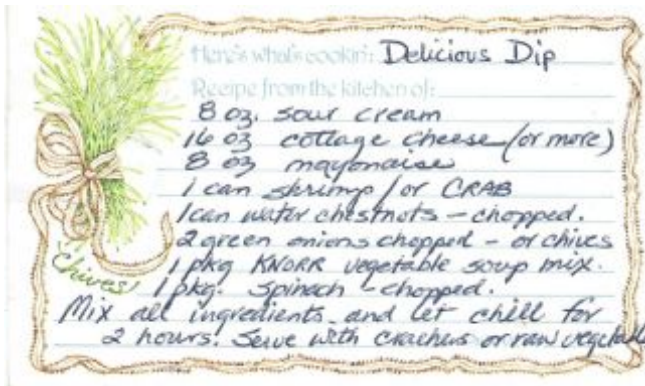 Here's what's cookin': Delicious Dip
Recipe from the kitchen of:
8 oz. sour cream
16 oz cottage cheese (or more)
8 oz mayonaise
1 can shrimp / or CRAB
1 can water chestnots - chopped.
2 green onions chopped - or chives
1 pkg KNORR vegetable soup mix.
1 pkg. spinach - chopped.
Mix all ingredients and let chill for
2 hours. Serve with crackers or raw vegetabl
chives